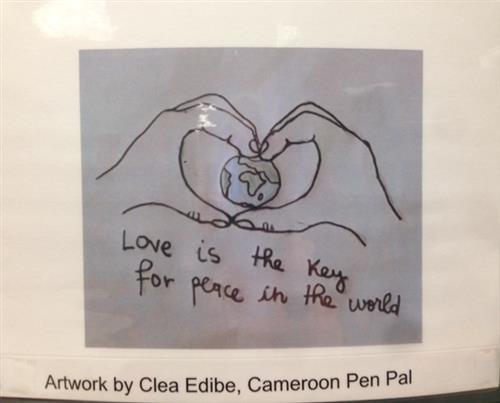 Love is the Key
for peace in the world
Artwork by Clea Edibe, Cameroon Pen Pal